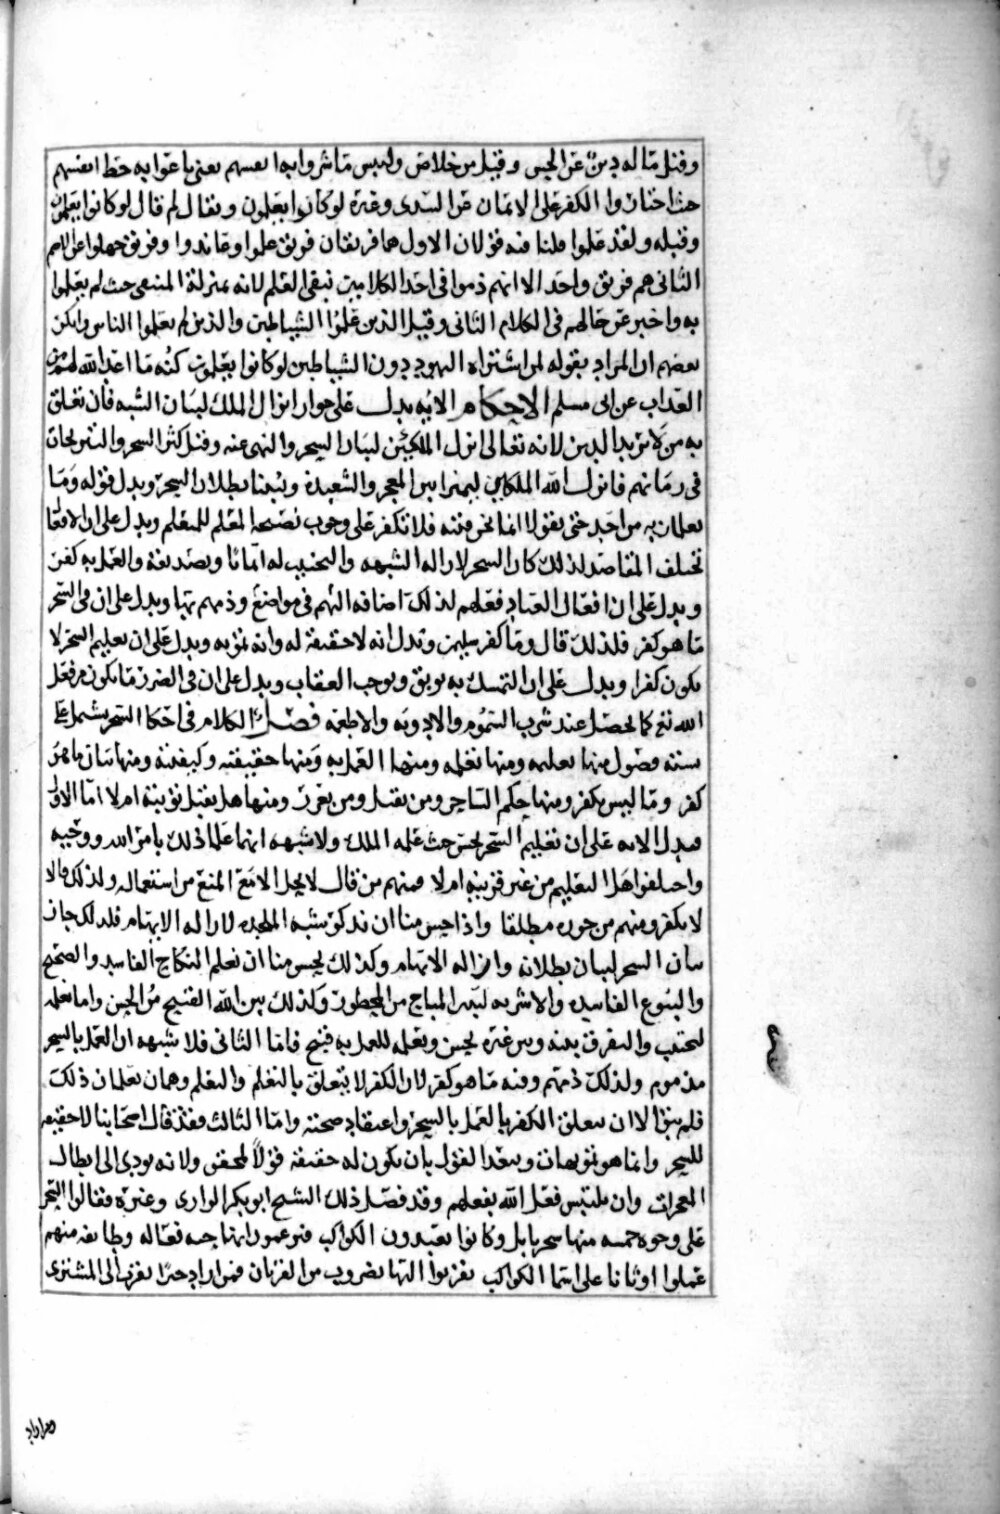 وقيل ماله دين عن الحسن وقيل من خلاص ولبئس ما شروا به انفسهم يعنى باعوا به حظ انفسهم
حيث اختاروا الكفر على الايمان عن السدى وغيره لو كانوا يعلمون ويقال لم قال لو كانوا يعلمون
وقبله ولقد علموا قلنا فيه قولان الاول هما فريقان فريق علموا وعاندوا وفريق جهلوا
الثانى هم فريق واحد الا انهم ذموا فى احد الكلامين بنفى العلم لانه بمنزلة المنتفى حيث لم يعملوا
به واخبر عن حالهم فى الكلام الثانى وقيل الذين علموا الشياطين والذين لم يعلموا الناس
بعضهم ان المراد بقوله لمن اشتراه اليهود دون الشياطين لو كانوا يعلمون كنه ما اعد الله لهم من
العذاب عن ابى مسلم الاحكام الآية يدل على جواز انزال الملك لبيان الشبه فان تعلق
به من لا يريد الدين لانه تعالى انزل الملكين لبيان السحر والنهى عنه وقيل كثر السحر
فى زمانهم فانزل الله الملكين ليميزا بين المعجز والشعبذة ويبينا بطلان السحر ويدل قوله وما
يعلمان من احد حتى يقولا انما نحن فتنة فلا تكفر على وجوب نصيحة المعلم للمتعلم ويدل على ان
تختلف المقاصد لذلك كان السحر لازالة الشبهه والتجنب له ايمانا وتصديقه والعمل به كفرا
ويدل على ان افعال العباد فعلهم لذلك اضافه اليهم فى مواضع وذمهم بها ويدل على ان فى السحر
ما هو كفر فلذلك قال وما كفر سليمن ويدل انه لا حقيقة له وانه تمويه ويدل على ان تعليم السحر لا
يكون كفرا ويدل على ان التمسك به يوبق ويوجب العقاب ويدل على ان فى الضرر ما يكون من فعل
الله تع كما يحصل عند شرب السموم والادوية والاطعمة فصل الكلام فى احكام السحر يشتمل على
ستة فصول منها تعليمه ومنها تعلمه ومنها العمل به ومنها حقيقته وكيفيته ومنها بيان ما هو
كفر وما ليس بكفر ومنها حكم الساحر ومن يقتل ومن يعزر ومنها هل يقبل توبته ام لا اما الاول
فيدل الآية على ان تعليم السحر يحسن حيث علمه الملك ولا شبهه انهما علما ذلك بامر الله ووحيه
واختلفوا هل التعليم من غير قرينة ام لا فمنهم من قال لا يحل الا مع المنع من استعماله ولذلك قالا
لا تكفر ومنهم من جوزه مطلقا واذا حسن منا ان نذكر شبه الملحدة لازالة الايهام فلذلك جاز
بيان السحر لبيان بطلانه وازالة الايهام وكذلك يحسن منا ان نعلم النكاح الفاسد والصحيح
والبيوع الفاسدة والاشربة ليتميز المباح من المحظور وكذلك بين الله القبيح من الحسن واما تعلمه
ليجتنب والتفرق بينه وبين غيره يحسن وتعلمه للعمل به قبيح فاما الثانى فلا شبهه ان العمل بالسحر
مذموم ولذلك ذمهم وفيه ما هو كفر لان الكفر لا يتعلق بالتعلم والتعليم وهما يعلمان ذلك
فلم يبق الا ان يتعلق الكفر بالعمل بالسحر واعتقاد صحته واما الثالث فقد قال اصحابنا لا حقيقة
للسحر وانما هو تمويهات وبعد القول بان يكون له حقيقة قولا لمحقق ولانه يودى الى ابطال
المعجزات وان يلتبس فعل الله بفعلهم وقد فصل ذلك الشيخ ابو بكر الرازى وغيره فقالوا السحر
على وجوه خمسه منها سحر بابل وكانوا يعبدون الكواكب فيزعمون انها حيه فعاله وطائفه منهم
عملوا اوثانا على اسما الكواكب يقربوا اليها بضروب من القربان فمن اراد خيرا يقرب الى المشترى